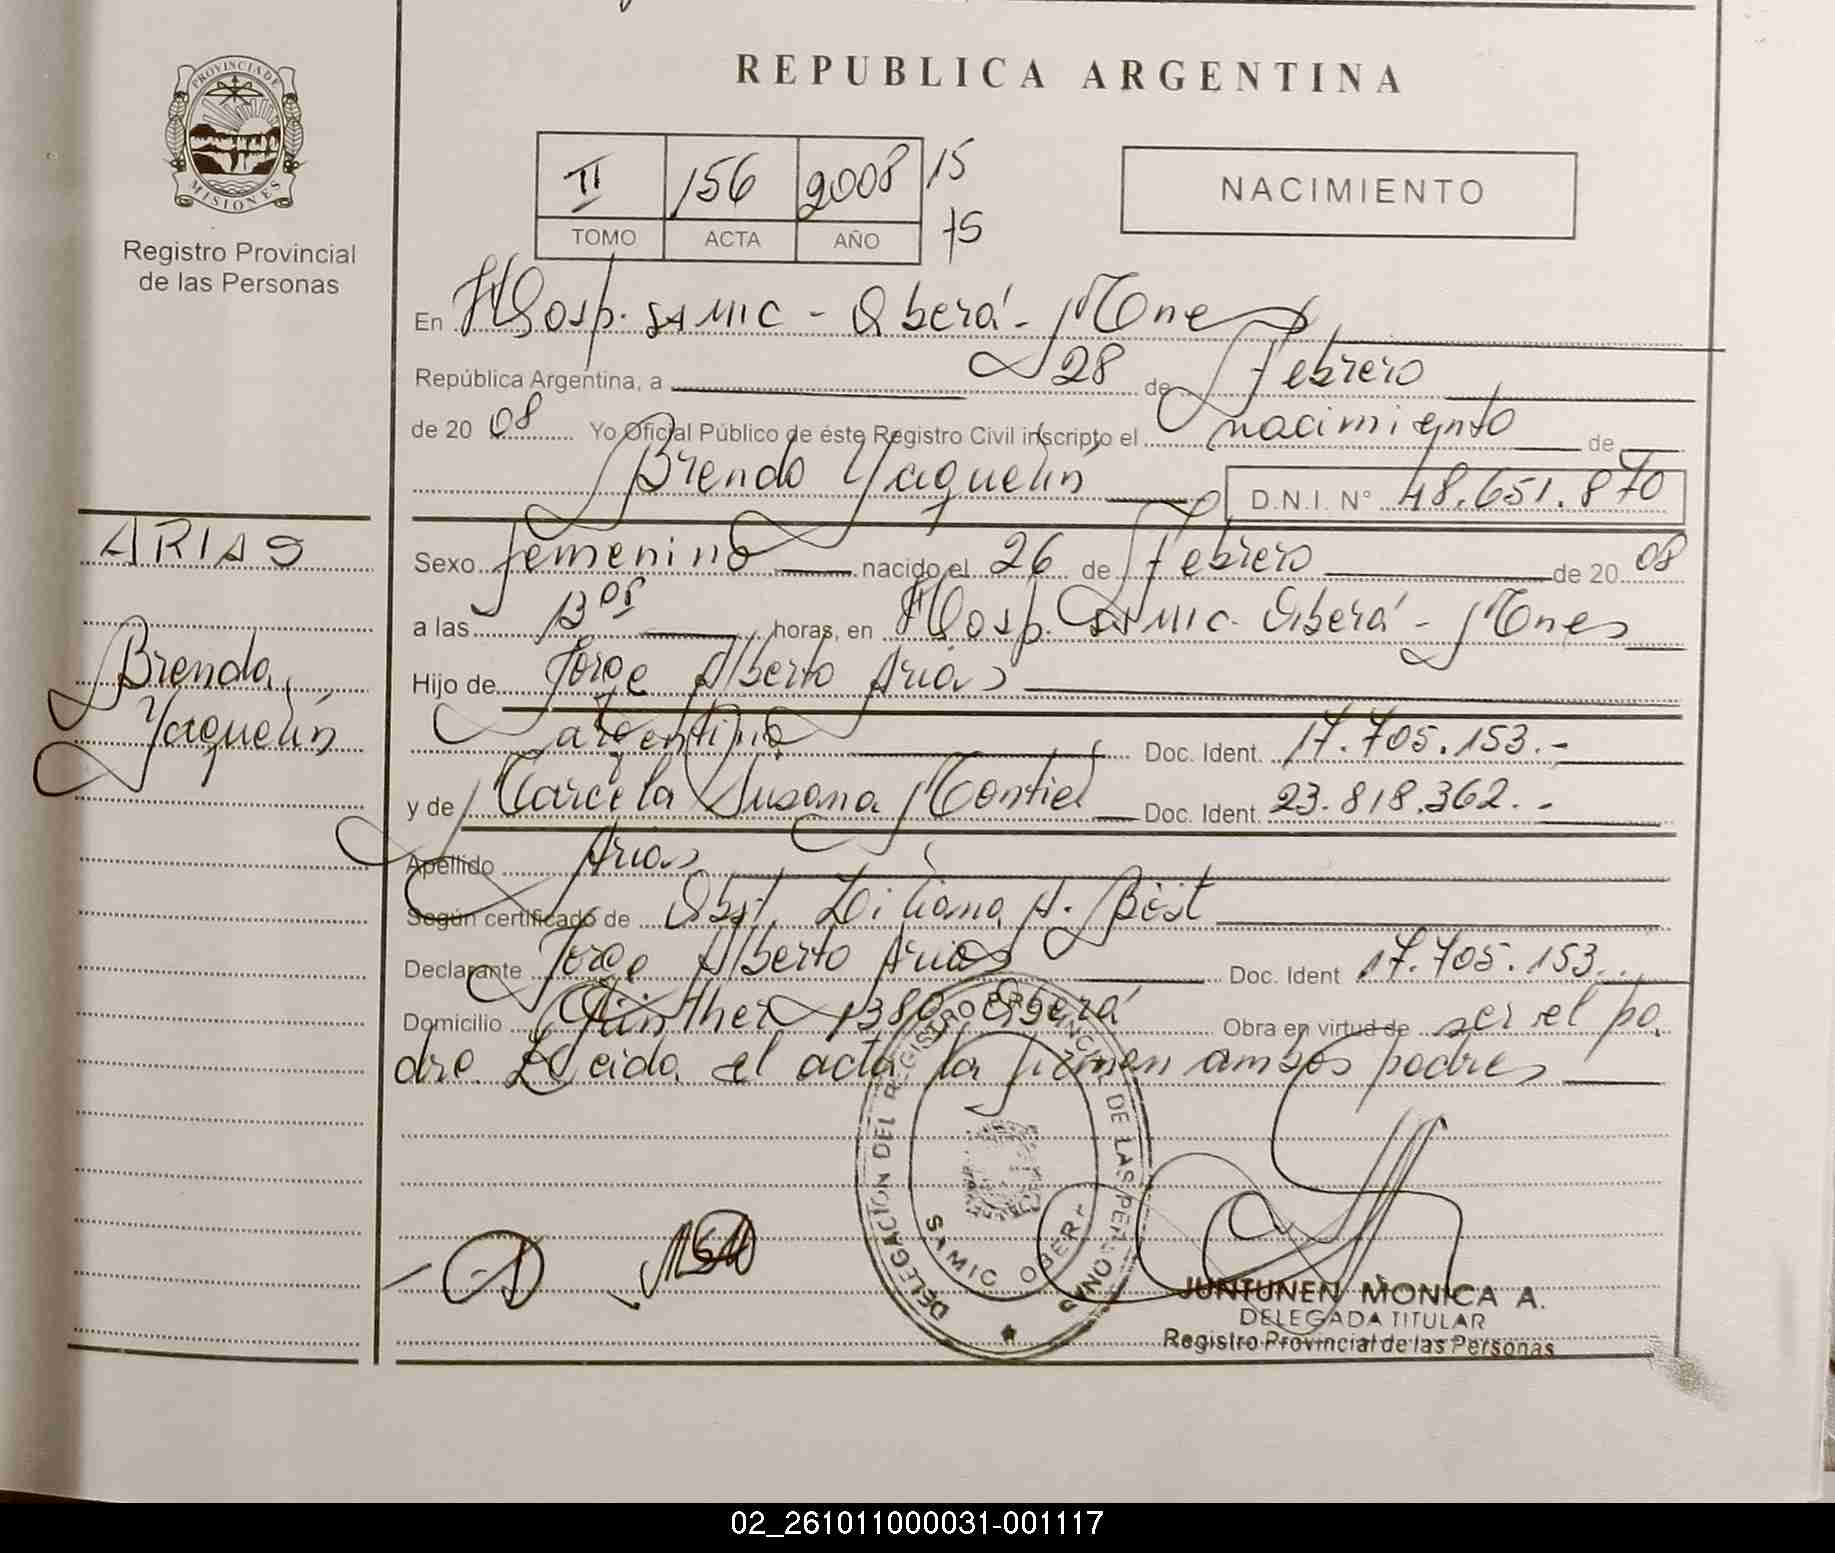 PROVINCIA DE
MISIONES
Registro Provincial
de las Personas
REPUBLICA ARGENTINA
II 156 2008 15
TOMO ACTA AÑO 15
NACIMIENTO
En Hosp. SAMIC - Oberá - Mnes
República Argentina, a 28 de Febrero
de 20 08 Yo Oficial Público de éste Registro Civil inscripto el nacimiento de
Brenda Yaquelin D.N.I. N° 48.651.870
ARIAS
Brenda
Yaquelin
Sexo femenino nacido el 26 de Febrero de 20 08
a las 13 05 horas, en Hosp. SAMIC. Oberá - Mnes
Hijo de Jorge Alberto Arias
argentino Doc. Ident. 17.705.153.-
y de Marcela Susana Montiel Doc. Ident. 23.818.362.-
Apellido Arias
Según certificado de Obst. Liliana A.
Declarante Jorge Alberto Arias Doc. Ident 17.705.153.
Domicilio 1380 Oberá Obra en virtud de ser el pa
dre. Leida el acta la firman ambos padres
DELEGACIÓN DEL REGISTRO PROVINCIAL DE LAS PERSONAS
SAMIC OBERÁ
JUNTUNEN MONICA A.
DELEGADA TITULAR
Registro Provincial de las Personas
02_261011000031-001117